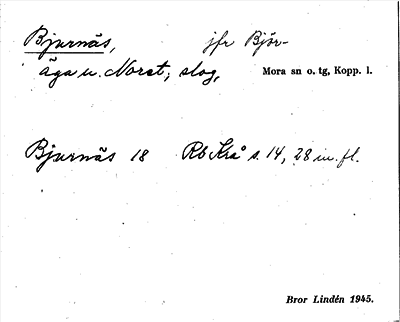 Bjurnäs, jfr Björ-
äga u. Noret; slog, Mora sn o. tg, Kopp. l.
Bjurnäs 18 Rb Krå s. 14, 28 m. fl.
Bror Lindén 1945.